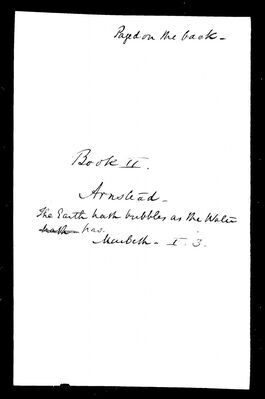 Paged on the back -
Book II.
Armstead -
The Earth hath bubbles as the Water
hath has.
Macbeth - I. 3.